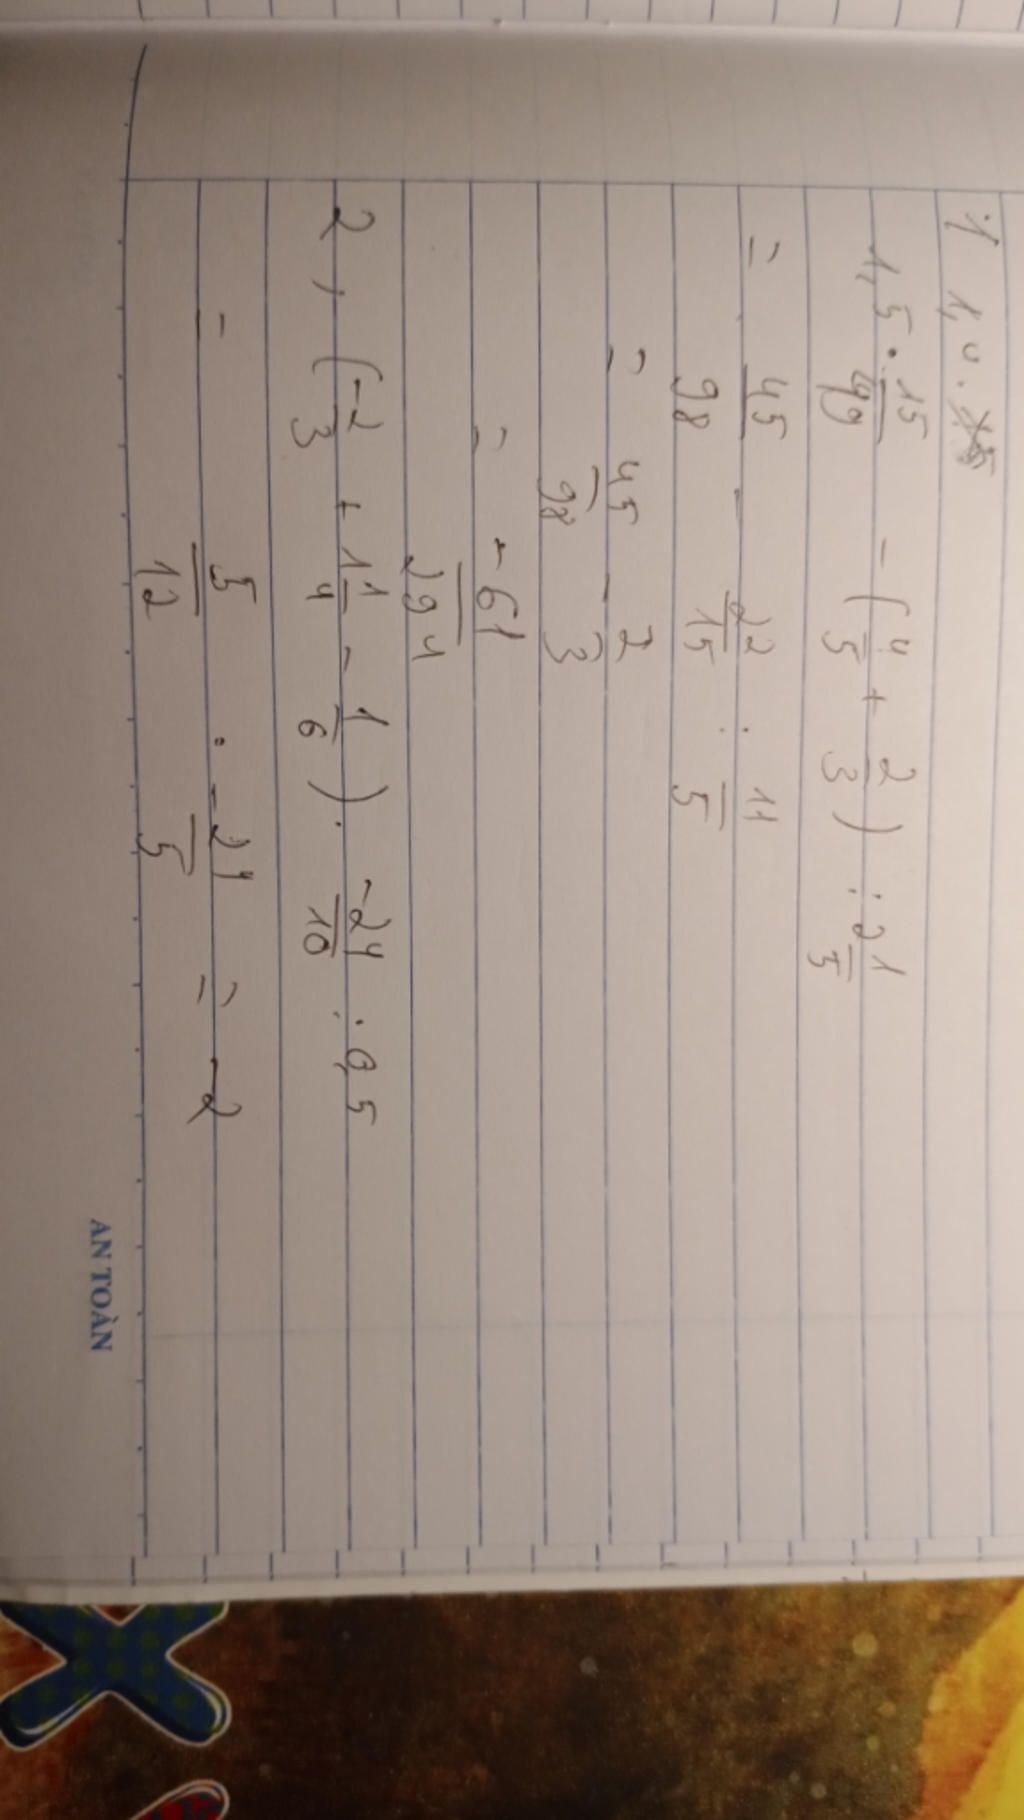 1, 1,0.
1,5 . 15/49 - (4/5 + 2/3) : 2 1/5
= 45/98 - 22/15 : 11/5
= 45/98 - 2/3
= -61/294
2, (-2/3 + 1 1/4 - 1/6) . -24/10 : 0,5
= 5/12 . -24/5 = -2
AN TOÀN